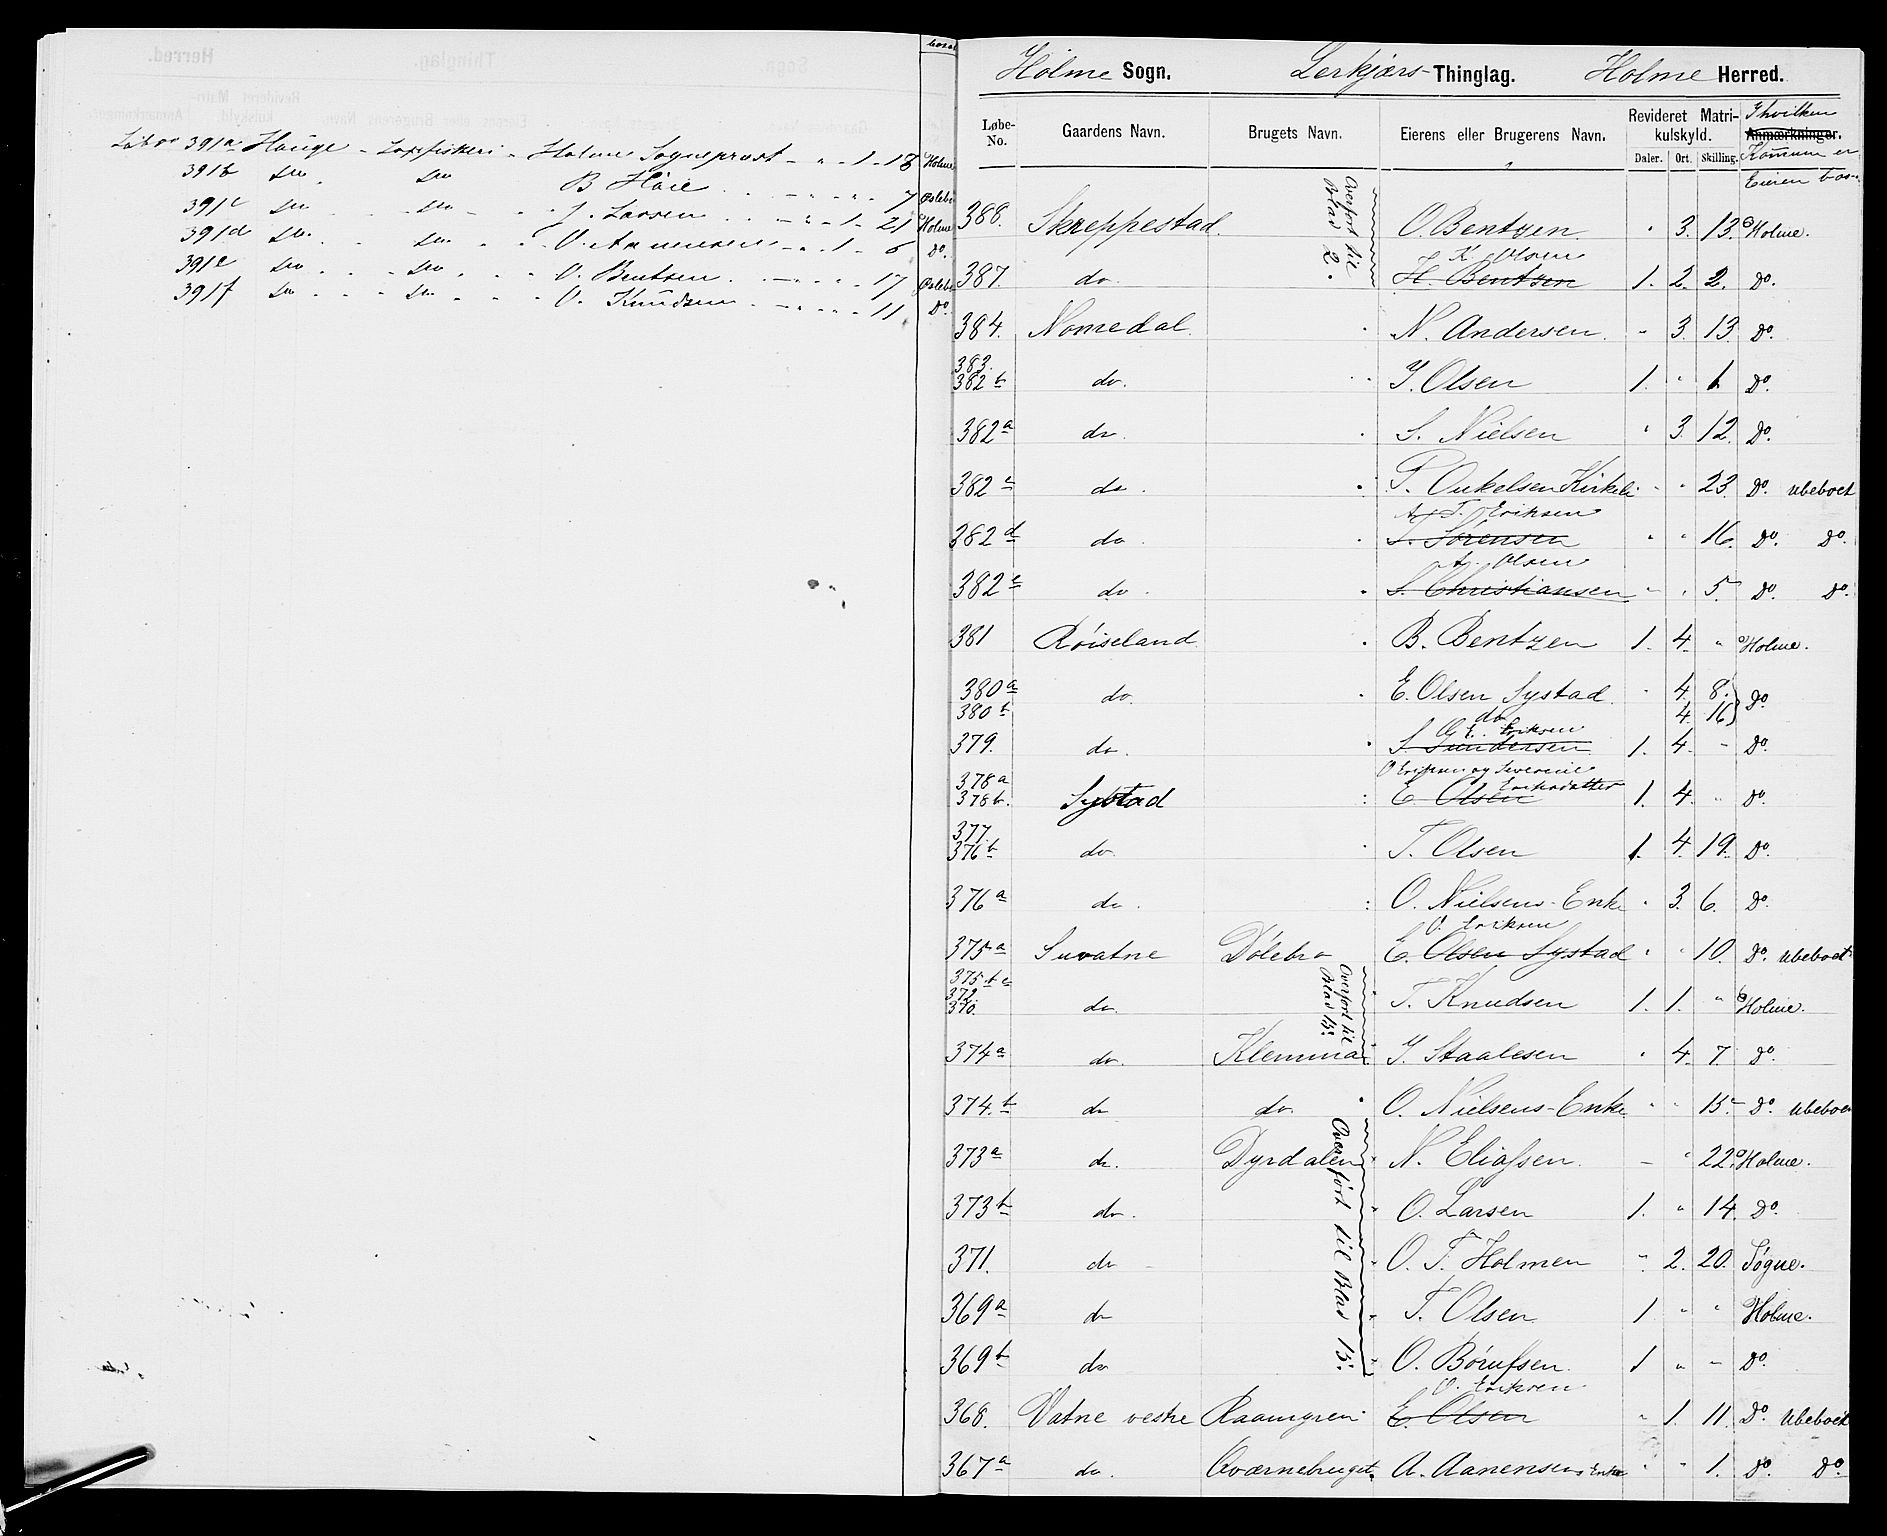 Løbno 391a Hauge - Laxfiskeri - Holme Sogneprest - " - 1 - 18 Holme
391b do do B Høie - " - " - 7 Øslebø
391c do do J. Larsen - " - 1 - 21 Holme
391d do do O. Aanensen - " - 1 - 6 Do.
391e do do O. Bentsen - " - " - 17 Øslebø
391f do do O. Knudsen - " - " - 11 Do.
Holme Sogn. Lerkjærs Thinglag. Holme Herred.
Løbe-No. Gaardens Navn. Brugets Navn. Eierens eller Brugerens Navn. Revideret Matrikulskyld. Daler. Ort. Skilling. Anmærkninger. I hvilken Kommune er Eieren bosat
388. Skreppestad. O. Bentzen. " 3. 13. Holme.
Overført til Blad 2.
K. Olsen
387. do. H. Bentzen 1. 2. 2. Do.
384. Nomedal. N. Andersen. " 3. 13. Do.
383. 382b do. Y. Olsen 1. " 1. Do.
382a do. S. Nielsen " 3. 12. Do.
382c do. P. Onkelsen Kirkeli " " 23. Do. ubeboet
T. Eriksen
382d do. S. Sørensen " " 16. Do. Do.
A. Olsen
382e do. S. Christiansen " " 5. Do. Do.
381 Røiseland. B. Bentzen 1. 4. " Holme.
380a do. E. Olsen Systad. " 4. 8. Do
380b do 4. 16
O. E. Eriksen
379. do. S. Gundersen 1. 4. - Do.
O Eriksen og Severine Eriksdatter
378a 378b. Systad E. Olsen 1. 4. " Do.
377. 376b do. T. Olsen 1. 4. 19. Do.
376a do. O. Nielsens Enke " 3. 6. Do.
O. Eriksen
375a Suvatne Dølebro E. Olsen Systad " " 10. Do. ubeboet
375b c 372. 370. do. T. Knudsen 1. 1. " Holme.
Overført til Blad 15.
374a do. Klemma Y. Staalesen " 4. 7. Do.
374.b do do. O. Nielsens Enke " " 15. Do. ubeboet
373a do. Dyrdalen N. Eliassen. - " 22. Holme.
Overført til Blad 15.
373b do. O. Larsen 1. " 14. Do.
371. do O. T. Holmen " 2. 20. Søgne.
369a do T. Olsen 1 " " Holme.
369b do O. Børufsen. 1 " - Do.
O. Eriksen
368. Vatne vestre Raamyren E. Olsen " 1. 11. Do. Ubeboet
367a do. Qværnebruget. A. Aanensens Enke " " 1. Do. Do.